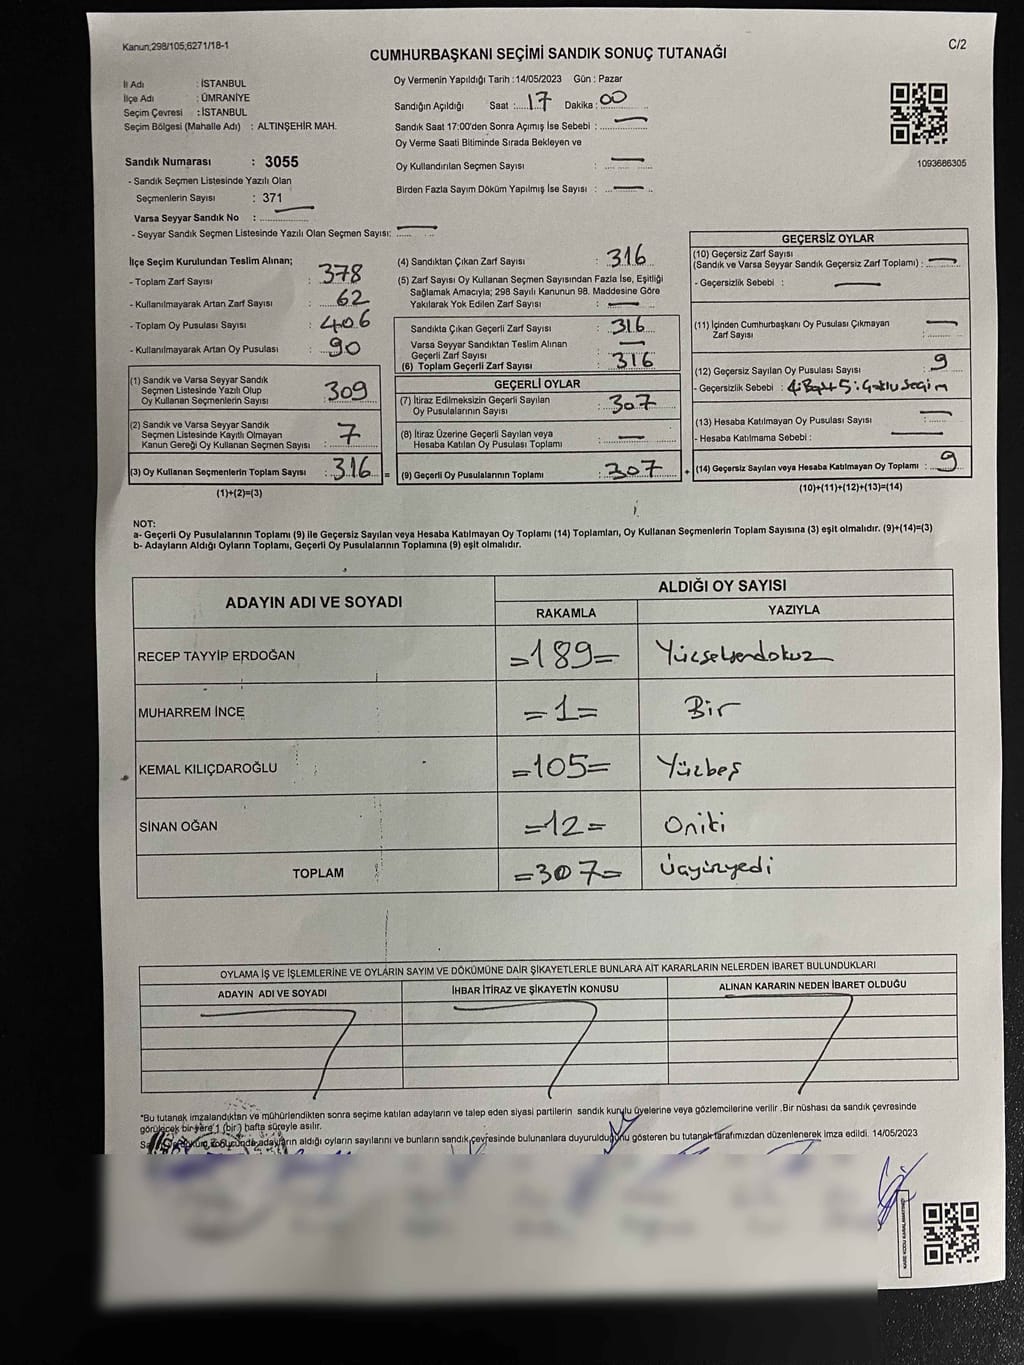 Kanun;298/105;6271/18-1
C/2
CUMHURBAŞKANI SEÇİMİ SANDIK SONUÇ TUTANAĞI
İl Adı : İSTANBUL
İlçe Adı : ÜMRANİYE
Seçim Çevresi : İSTANBUL
Seçim Bölgesi (Mahalle Adı) : ALTINŞEHİR MAH.
Oy Vermenin Yapıldığı Tarih :14/05/2023 Gün : Pazar
Sandığın Açıldığı Saat : 17 Dakika : 00
Sandık Saat 17:00'den Sonra Açımış İse Sebebi : —
Oy Verme Saati Bitiminde Sırada Bekleyen ve
Oy Kullandırılan Seçmen Sayısı : —
Birden Fazla Sayım Döküm Yapılmış İse Sayısı : —
1093686305
Sandık Numarası : 3055
- Sandık Seçmen Listesinde Yazılı Olan
Seçmenlerin Sayısı : 371
Varsa Seyyar Sandık No : —
- Seyyar Sandık Seçmen Listesinde Yazılı Olan Seçmen Sayısı: —
İlçe Seçim Kurulundan Teslim Alınan;
- Toplam Zarf Sayısı : 378
- Kullanılmayarak Artan Zarf Sayısı : 62
- Toplam Oy Pusulası Sayısı : 406
- Kullanılmayarak Artan Oy Pusulası : 90
(1) Sandık ve Varsa Seyyar Sandık
Seçmen Listesinde Yazılı Olup
Oy Kullanan Seçmenlerin Sayısı : 309
(2) Sandık ve Varsa Seyyar Sandık
Seçmen Listesinde Kayıtlı Olmayan
Kanun Gereği Oy Kullanan Seçmen Sayısı : 7
(3) Oy Kullanan Seçmenlerin Toplam Sayısı : 316 =
(1)+(2)=(3)
(4) Sandıktan Çıkan Zarf Sayısı : 316
(5) Zarf Sayısı Oy Kullanan Seçmen Sayısından Fazla İse, Eşitliği
Sağlamak Amacıyla; 298 Sayılı Kanunun 98. Maddesine Göre
Yakılarak Yok Edilen Zarf Sayısı : —
Sandıkta Çıkan Geçerli Zarf Sayısı : 316
Varsa Seyyar Sandıktan Teslim Alınan
Geçerli Zarf Sayısı : —
(6) Toplam Geçerli Zarf Sayısı : 316
GEÇERLİ OYLAR
(7) İtiraz Edilmeksizin Geçerli Sayılan
Oy Pusulalarının Sayısı : 307
(8) İtiraz Üzerine Geçerli Sayılan veya
Hesaba Katılan Oy Pusulası Toplamı : —
(9) Geçerli Oy Pusulalarının Toplamı : 307 +
GEÇERSİZ OYLAR
(10) Geçersiz Zarf Sayısı
(Sandık ve Varsa Seyyar Sandık Geçersiz Zarf Toplamı) : —
- Geçersizlik Sebebi : —
(11) İçinden Cumhurbaşkanı Oy Pusulası Çıkmayan
Zarf Sayısı : —
(12) Geçersiz Sayılan Oy Pusulası Sayısı : 9
- Geçersizlik Sebebi : 4:Boş 5:Çoklu Seçim
(13) Hesaba Katılmayan Oy Pusulası Sayısı : —
- Hesaba Katılmama Sebebi : —
(14) Geçersiz Sayılan veya Hesaba Katılmayan Oy Toplamı : 9
(10)+(11)+(12)+(13)=(14)
NOT:
a- Geçerli Oy Pusulalarının Toplamı (9) ile Geçersiz Sayılan veya Hesaba Katılmayan Oy Toplamı (14) Toplamları, Oy Kullanan Seçmenlerin Toplam Sayısına (3) eşit olmalıdır. (9)+(14)=(3)
b- Adayların Aldığı Oyların Toplamı, Geçerli Oy Pusulalarının Toplamına (9) eşit olmalıdır.
ADAYIN ADI VE SOYADI
ALDIĞI OY SAYISI
RAKAMLA YAZIYLA
RECEP TAYYİP ERDOĞAN =189= Yüzseksendokuz
MUHARREM İNCE =1= Bir
KEMAL KILIÇDAROĞLU =105= Yüzbeş
SİNAN OĞAN =12= Oniki
TOPLAM =307= Üçyüzyedi
OYLAMA İŞ VE İŞLEMLERİNE VE OYLARIN SAYIM VE DÖKÜMÜNE DAİR ŞİKAYETLERLE BUNLARA AİT KARARLARIN NELERDEN İBARET BULUNDUKLARI
ADAYIN ADI VE SOYADI İHBAR İTİRAZ VE ŞİKAYETİN KONUSU ALINAN KARARIN NEDEN İBARET OLDUĞU
"Bu tutanak imzalandıktan ve mühürlendikten sonra seçime katılan adayların ve talep eden siyasi partilerin sandık kurulu üyelerine veya gözlemcilerine verilir .Bir nüshası da sandık çevresinde
görülecek bir yere 1 (bir) hafta süreyle asılır.
adayların aldığı oyların sayılarını ve bunların sandık çevresinde bulunanlara duyurulduğunu gösteren bu tutanak tarafımızdan düzenlenerek imza edildi. 14/05/2023
KARE KODU KARALAMAYINIZ